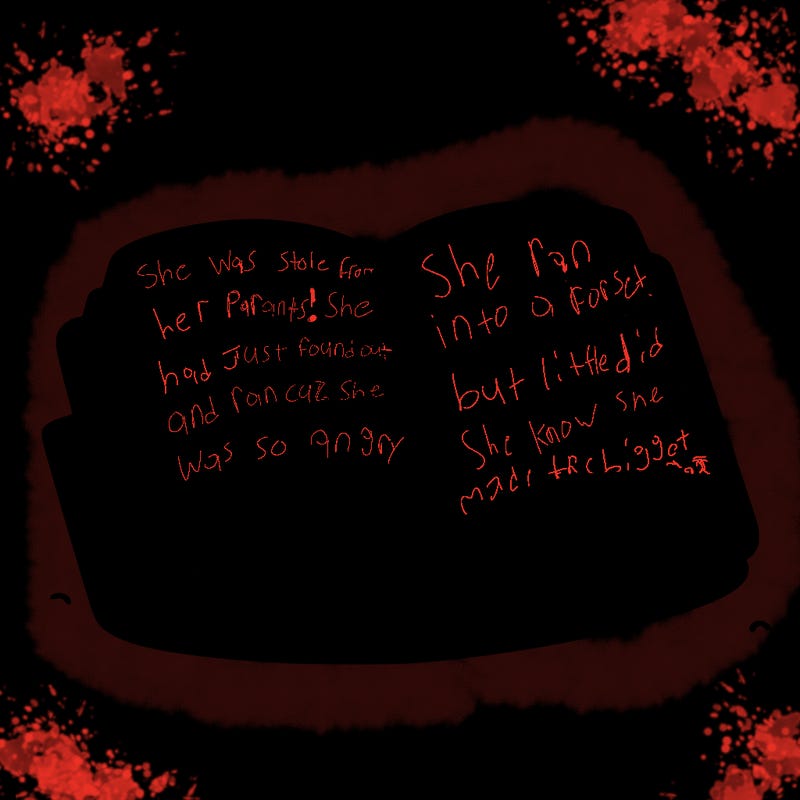 She was stole from
her Parants! She
had Just found out
and ran cuz she
was so angry
She ran
into a Forset.
but little did
She know she
made the bigget